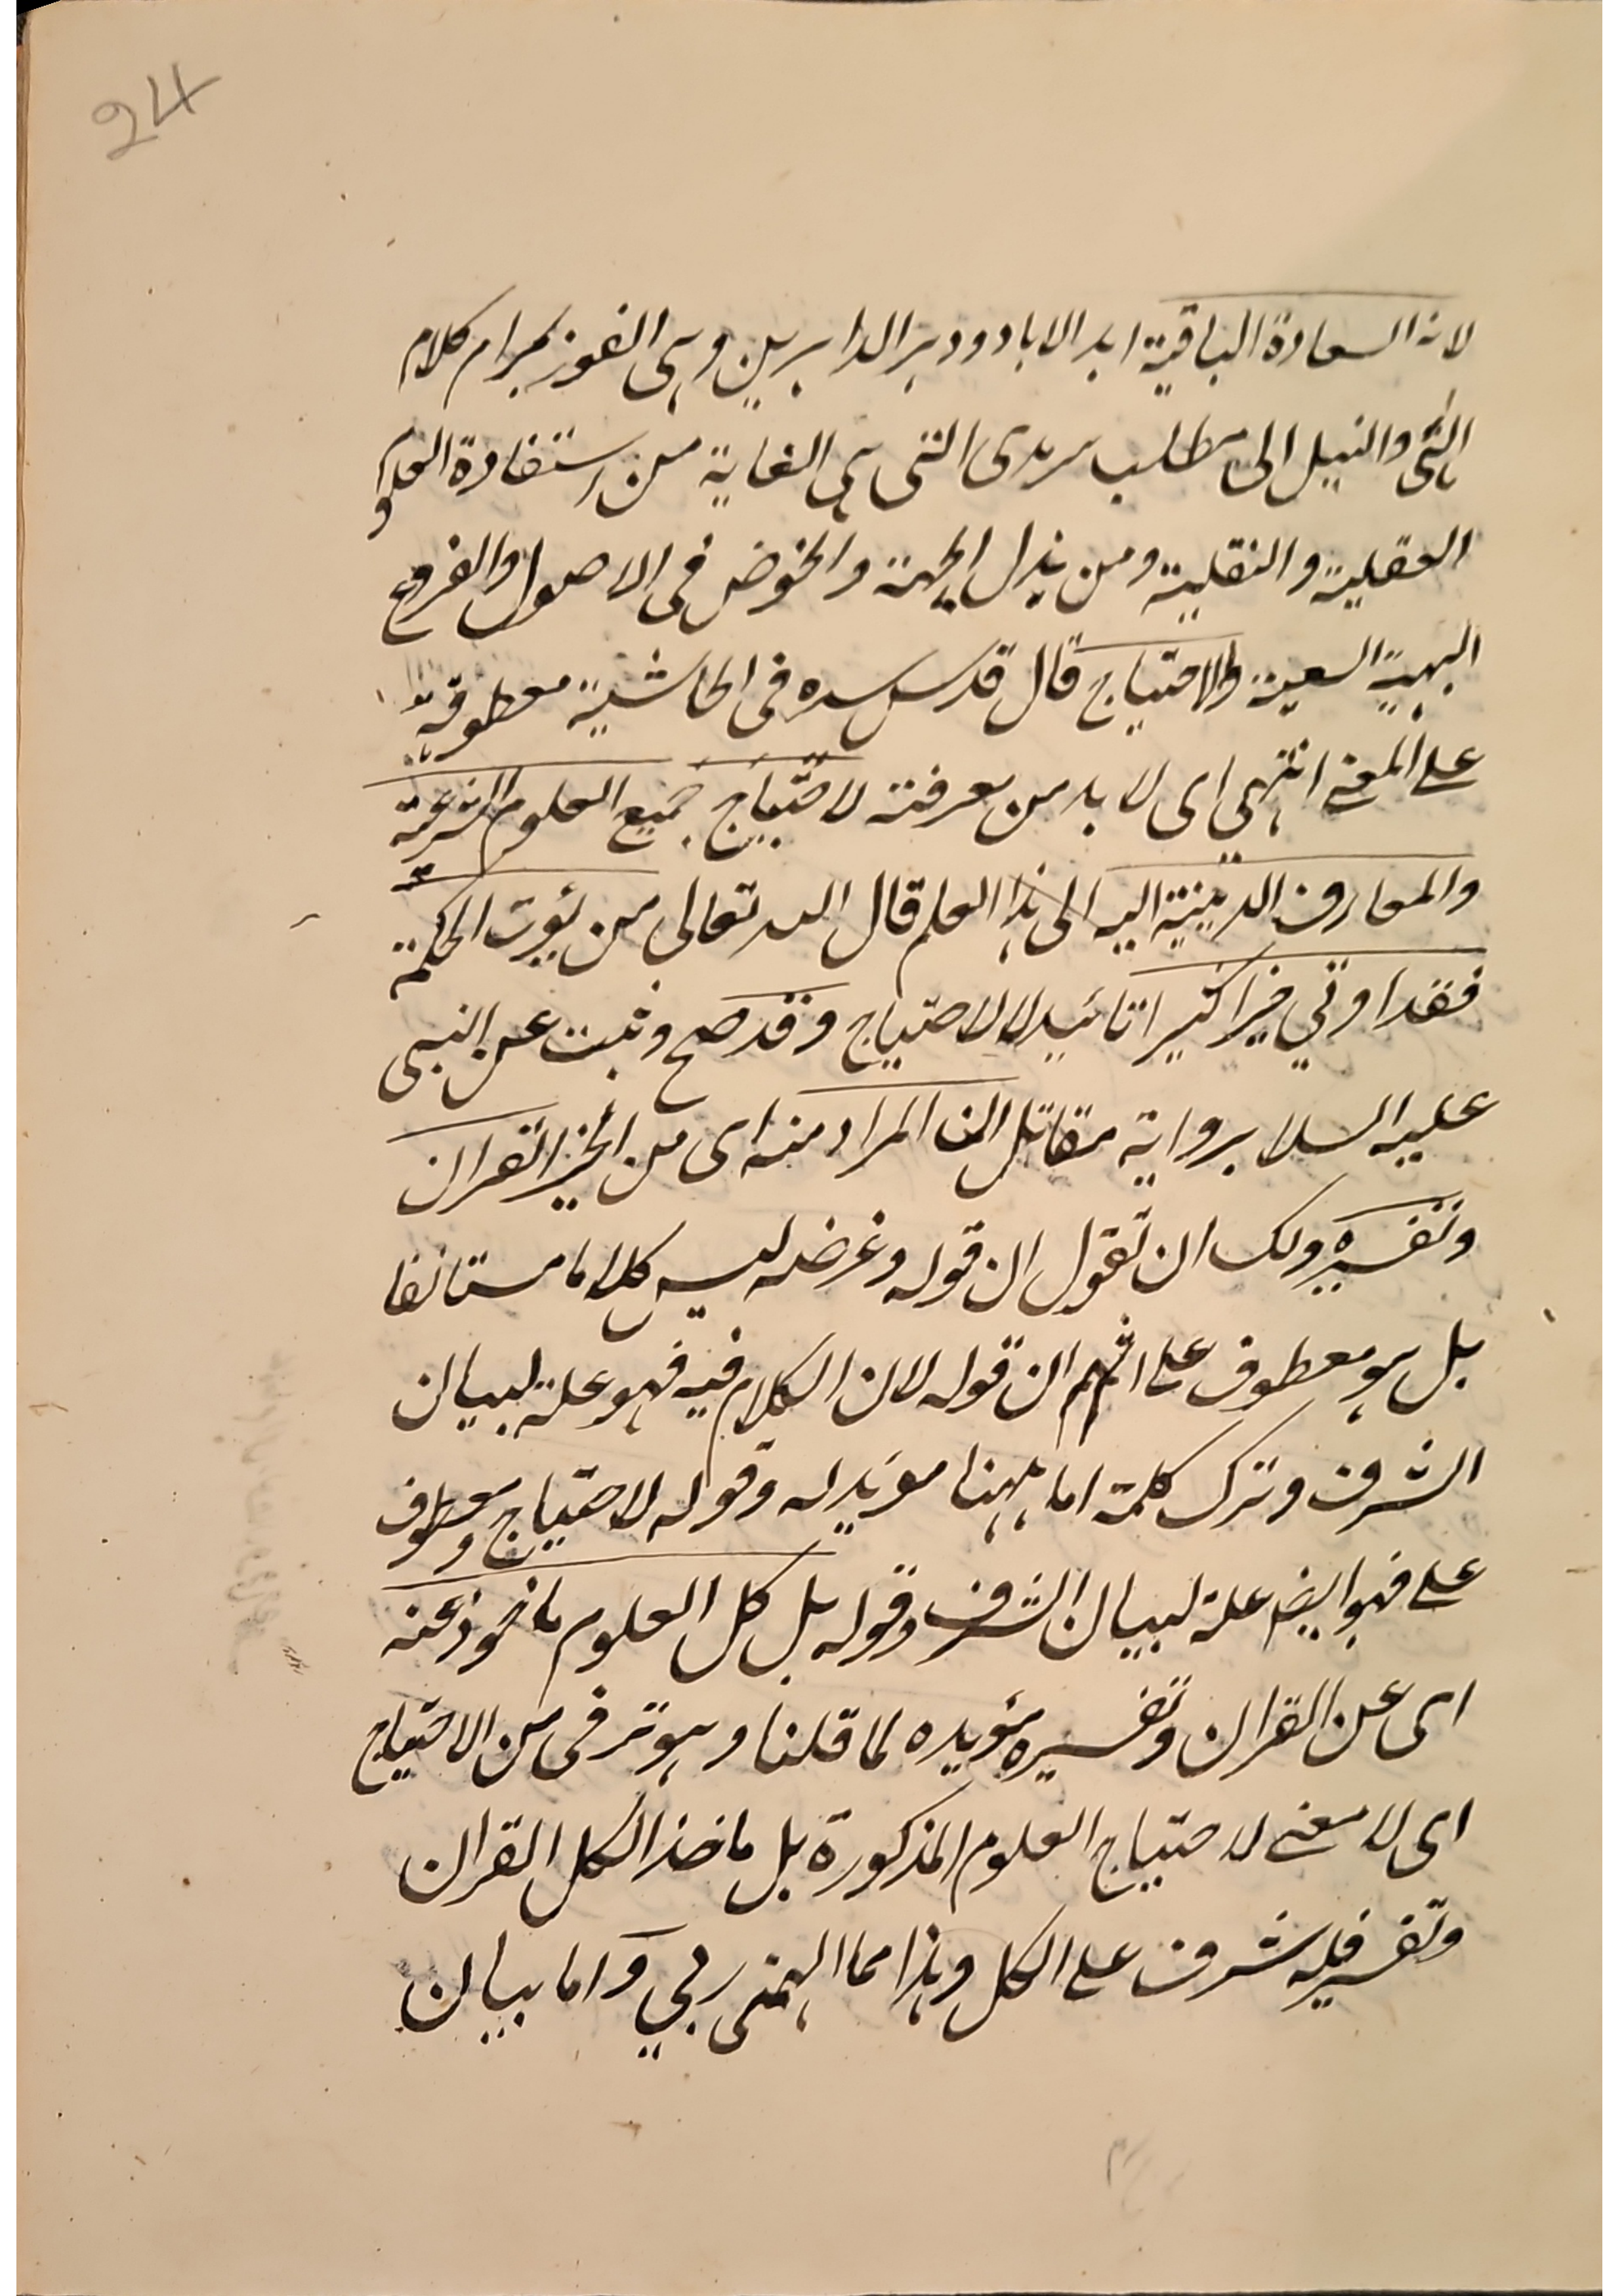 24
لانه السعادة الباقية ابد الاباد ودهر الداهرين وهى الفوز بمرام كلام
الهى والنيل الى مطلب سرمدى التى هى الغاية من استفادة العلوم
العقلية والنقلية ومن بذل الجهة والخوض فى الاصول والفروع
البهية السعية والاحتياج قال قدس سره فى الحاشية معطوفة
على المعنے انتهى اى لا بد من معرفته لاحتياج جميع العلوم الشرعية
والمعارف الدينية اليه الى هذا العلم قال الله تعالى من يؤت الحكمة
فقد اوتي خيرا كثيرا تائيد للاحتياج وقد صح وثبت عن النبى
عليه السلا برواية مقاتل ان المراد منه اى من الخير القران
وتفسيره ولك ان تقول ان قوله وغرضه ليس كلاما مستانفا
بل هو معطوف على اثم ان قوله لان الكلام فيه فهو علة لبيان
الشرف وترك كلمة اما ههنا مؤيد له وقوله لاحتياج معطوف
على فهو ايضا علة لبيان الشرف وقوله بل كل العلوم ماخوذ عنه
اى عن القران وتفسيره مؤيده لما قلنا وهو ترقى من الاحتياج
اى لا معنے لاحتياج العلوم المذكورة بل ماخذ الكل القران
وتفسير فله شرف على الكل وهذا مما الهمنى ربي واما بيان